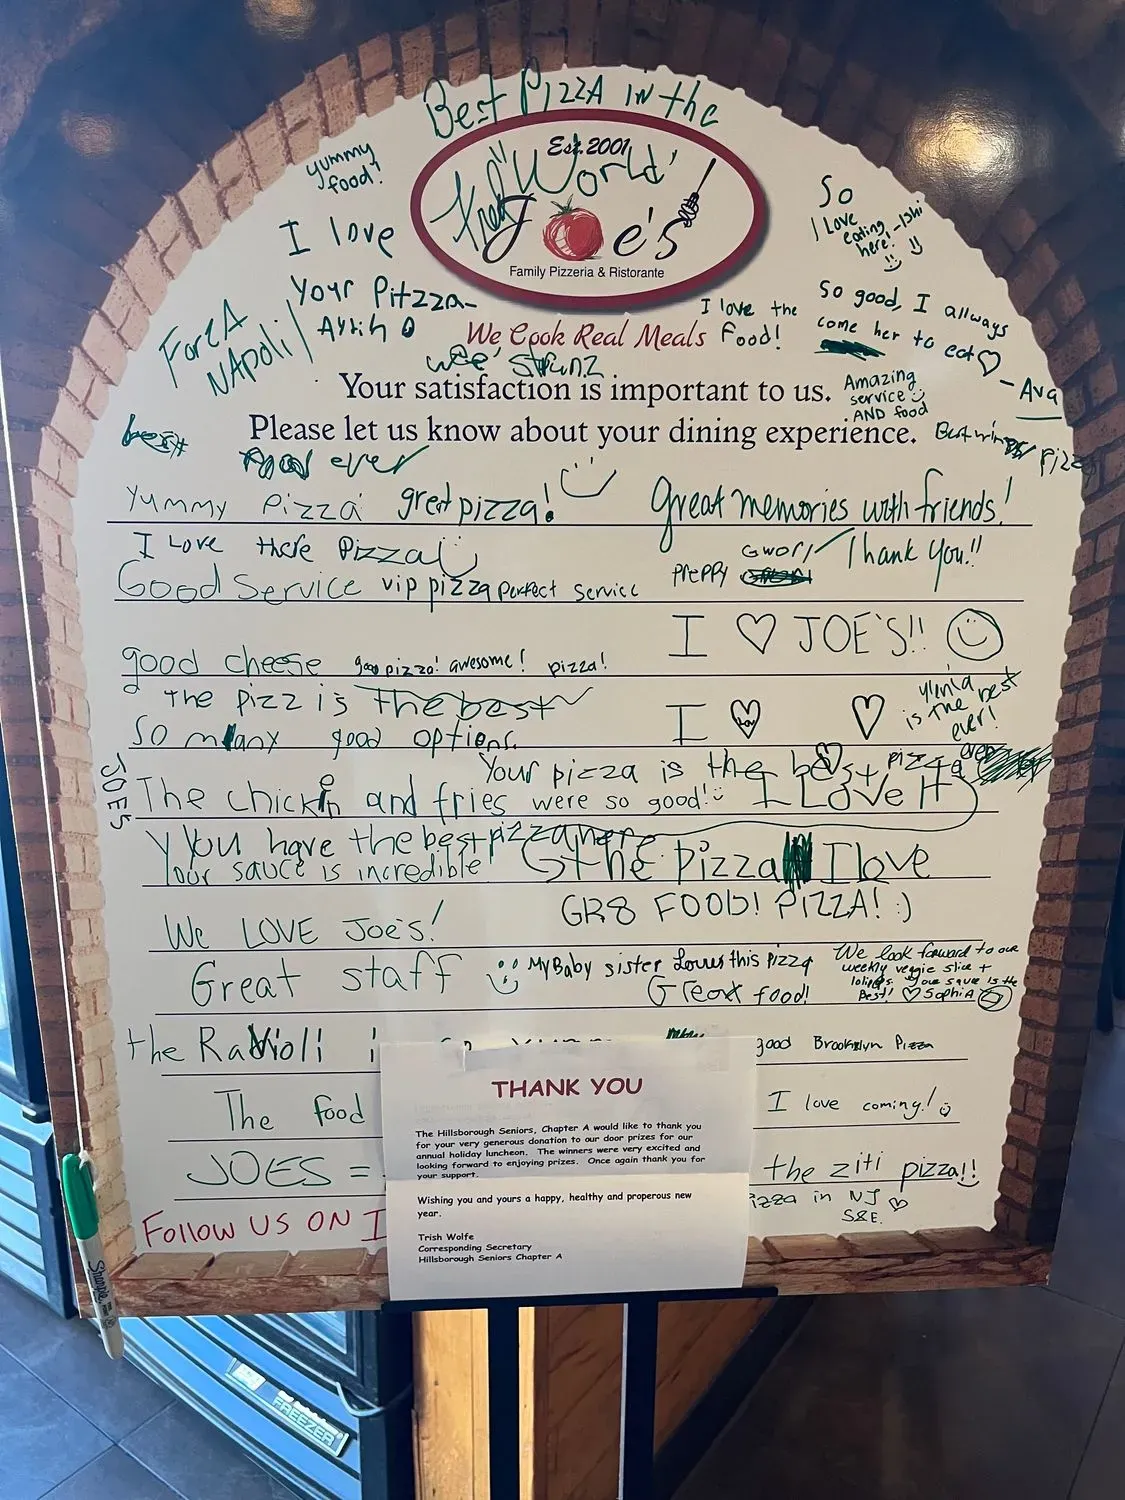 Best Pizza in the
"World"
Est. 2001
Joe's
Family Pizzeria & Ristorante
yummy
food!
I love
Your Pitzza
ForzA
NApoli
So
I Love
eating
here! -Ishi
So good, I allways
come her to eat
- Ava
I love the
Food!
We Cook Real Meals
Your satisfaction is important to us.
Please let us know about your dining experience.
Amazing
service
AND food
best
food ever
Yummy Pizza great pizza!
Great memories with friends!
Thank you!!
I Love there Pizza!
preppy
Good Service vip pizza perfect service
I ♡ JOE'S!!
good cheese good pizza! awesome! pizza!
the pizz is the best
I ♡ ♡
is the best
ever!
So many good options.
Your pizza is the best pizza ever
JOES
The chickin and fries were so good! I Love It
Y You have the best pizza here
Your sauce is incredible
the pizza I love
GR8 FOOD! PIZZA! :)
We LOVE Joe's!
Great staff
My Baby sister Loves this pizza
Great food!
We look forward to our
weekly veggie slice +
your sauce is the
Best! ♡ Sophia
the Ravioli
good Brooklyn Pizza
The food
I love coming!
JOES =
the ziti pizza!!
pizza in NJ
S&E.
FOLLOW US ON I
THANK YOU
The Hillsborough Seniors, Chapter A would like to thank you
for your very generous donation to our door prizes for our
annual holiday luncheon. The winners were very excited and
looking forward to enjoying prizes. Once again thank you for
your support.
Wishing you and yours a happy, healthy and properous new
year.
Trish Wolfe
Corresponding Secretary
Hillsborough Seniors Chapter A
Sharpie
FREEZER